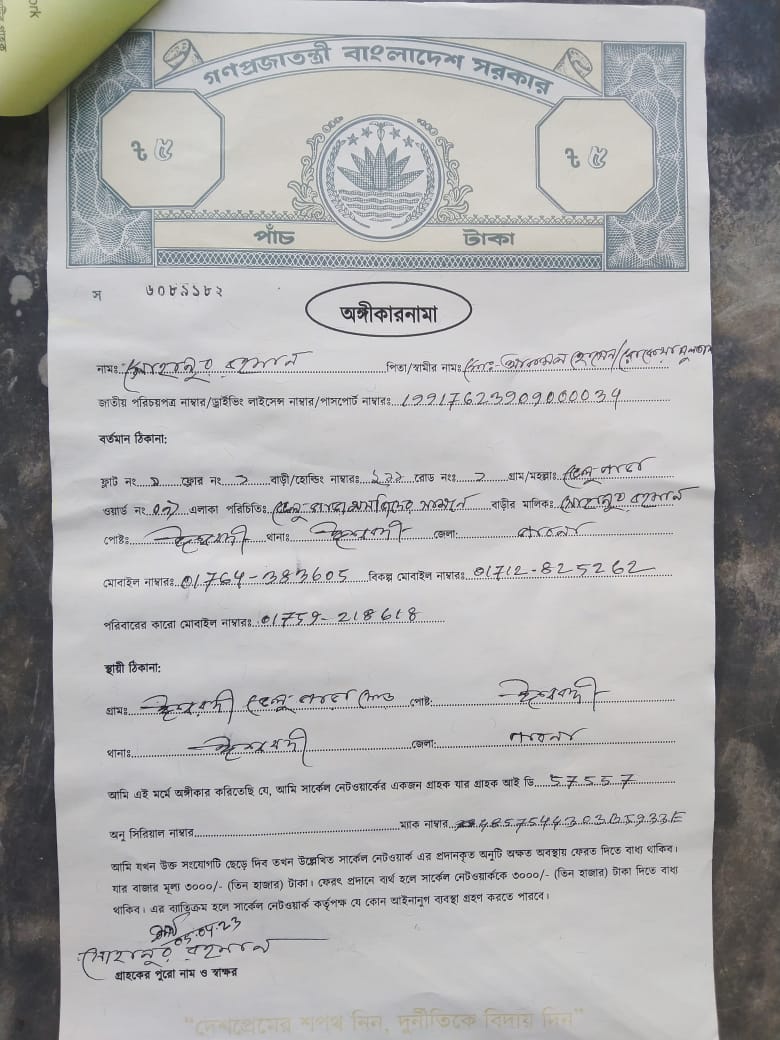 ork
গণপ্রজাতন্ত্রী বাংলাদেশ সরকার
৳ ৫ ৳ ৫
পাঁচ টাকা
স ৬০৮৯১৮২
অঙ্গীকারনামা
নামঃ রহমান পিতা/স্বামীর নামঃ মোঃ- হোসেন/
জাতীয় পরিচয়পত্র নাম্বার/ড্রাইভিং লাইসেন্স নাম্বার/পাসপোর্ট নাম্বারঃ 19917623909000034
বর্তমান ঠিকানা:
ফ্লাট নং ফ্লোর নং বাড়ী/হোল্ডিং নাম্বারঃ রোড নংঃ গ্রাম/মহল্লাঃ পাড়া
ওয়ার্ড নং এলাকা পরিচিতিঃ পাড়া মসজিদের সামনে বাড়ীর মালিকঃ রহমান
পোষ্টঃ ঈশ্বরদী থানাঃ ঈশ্বরদী জেলা: পাবনা
মোবাইল নাম্বারঃ 01764-383605 বিকল্প মোবাইল নাম্বারঃ 01712-825262
পরিবারের কারো মোবাইল নাম্বারঃ 01759-218618
স্থায়ী ঠিকানা:
গ্রামঃ ঈশ্বরদী পাড়া রোড পোষ্ট: ঈশ্বরদী
থানাঃ ঈশ্বরদী জেলা: পাবনা
আমি এই মর্মে অঙ্গীকার করিতেছি যে, আমি সার্কেল নেটওয়ার্কের একজন গ্রাহক যার গ্রাহক আই ডি 57557
অনু সিরিয়াল নাম্বার ম্যাক নাম্বার
আমি যখন উক্ত সংযোগটি ছেড়ে দিব তখন উল্লেখিত সার্কেল নেটওয়ার্ক এর প্রদানকৃত অনুটি অক্ষত অবস্থায় ফেরত দিতে বাধ্য থাকিব।
যার বাজার মূল্য ৩০০০/- (তিন হাজার) টাকা। ফেরৎ প্রদানে ব্যর্থ হলে সার্কেল নেটওয়ার্ককে ৩০০০/- (তিন হাজার) টাকা দিতে বাধ্য
থাকিব। এর ব্যতিক্রম হলে সার্কেল নেটওয়ার্ক কর্তৃপক্ষ যে কোন আইনানুগ ব্যবস্থা গ্রহণ করতে পারবে।
05.04.23
রহমান
গ্রাহকের পুরো নাম ও স্বাক্ষর
"দেশপ্রেমের শপথ নিন, দুর্নীতিকে বিদায় দিন"